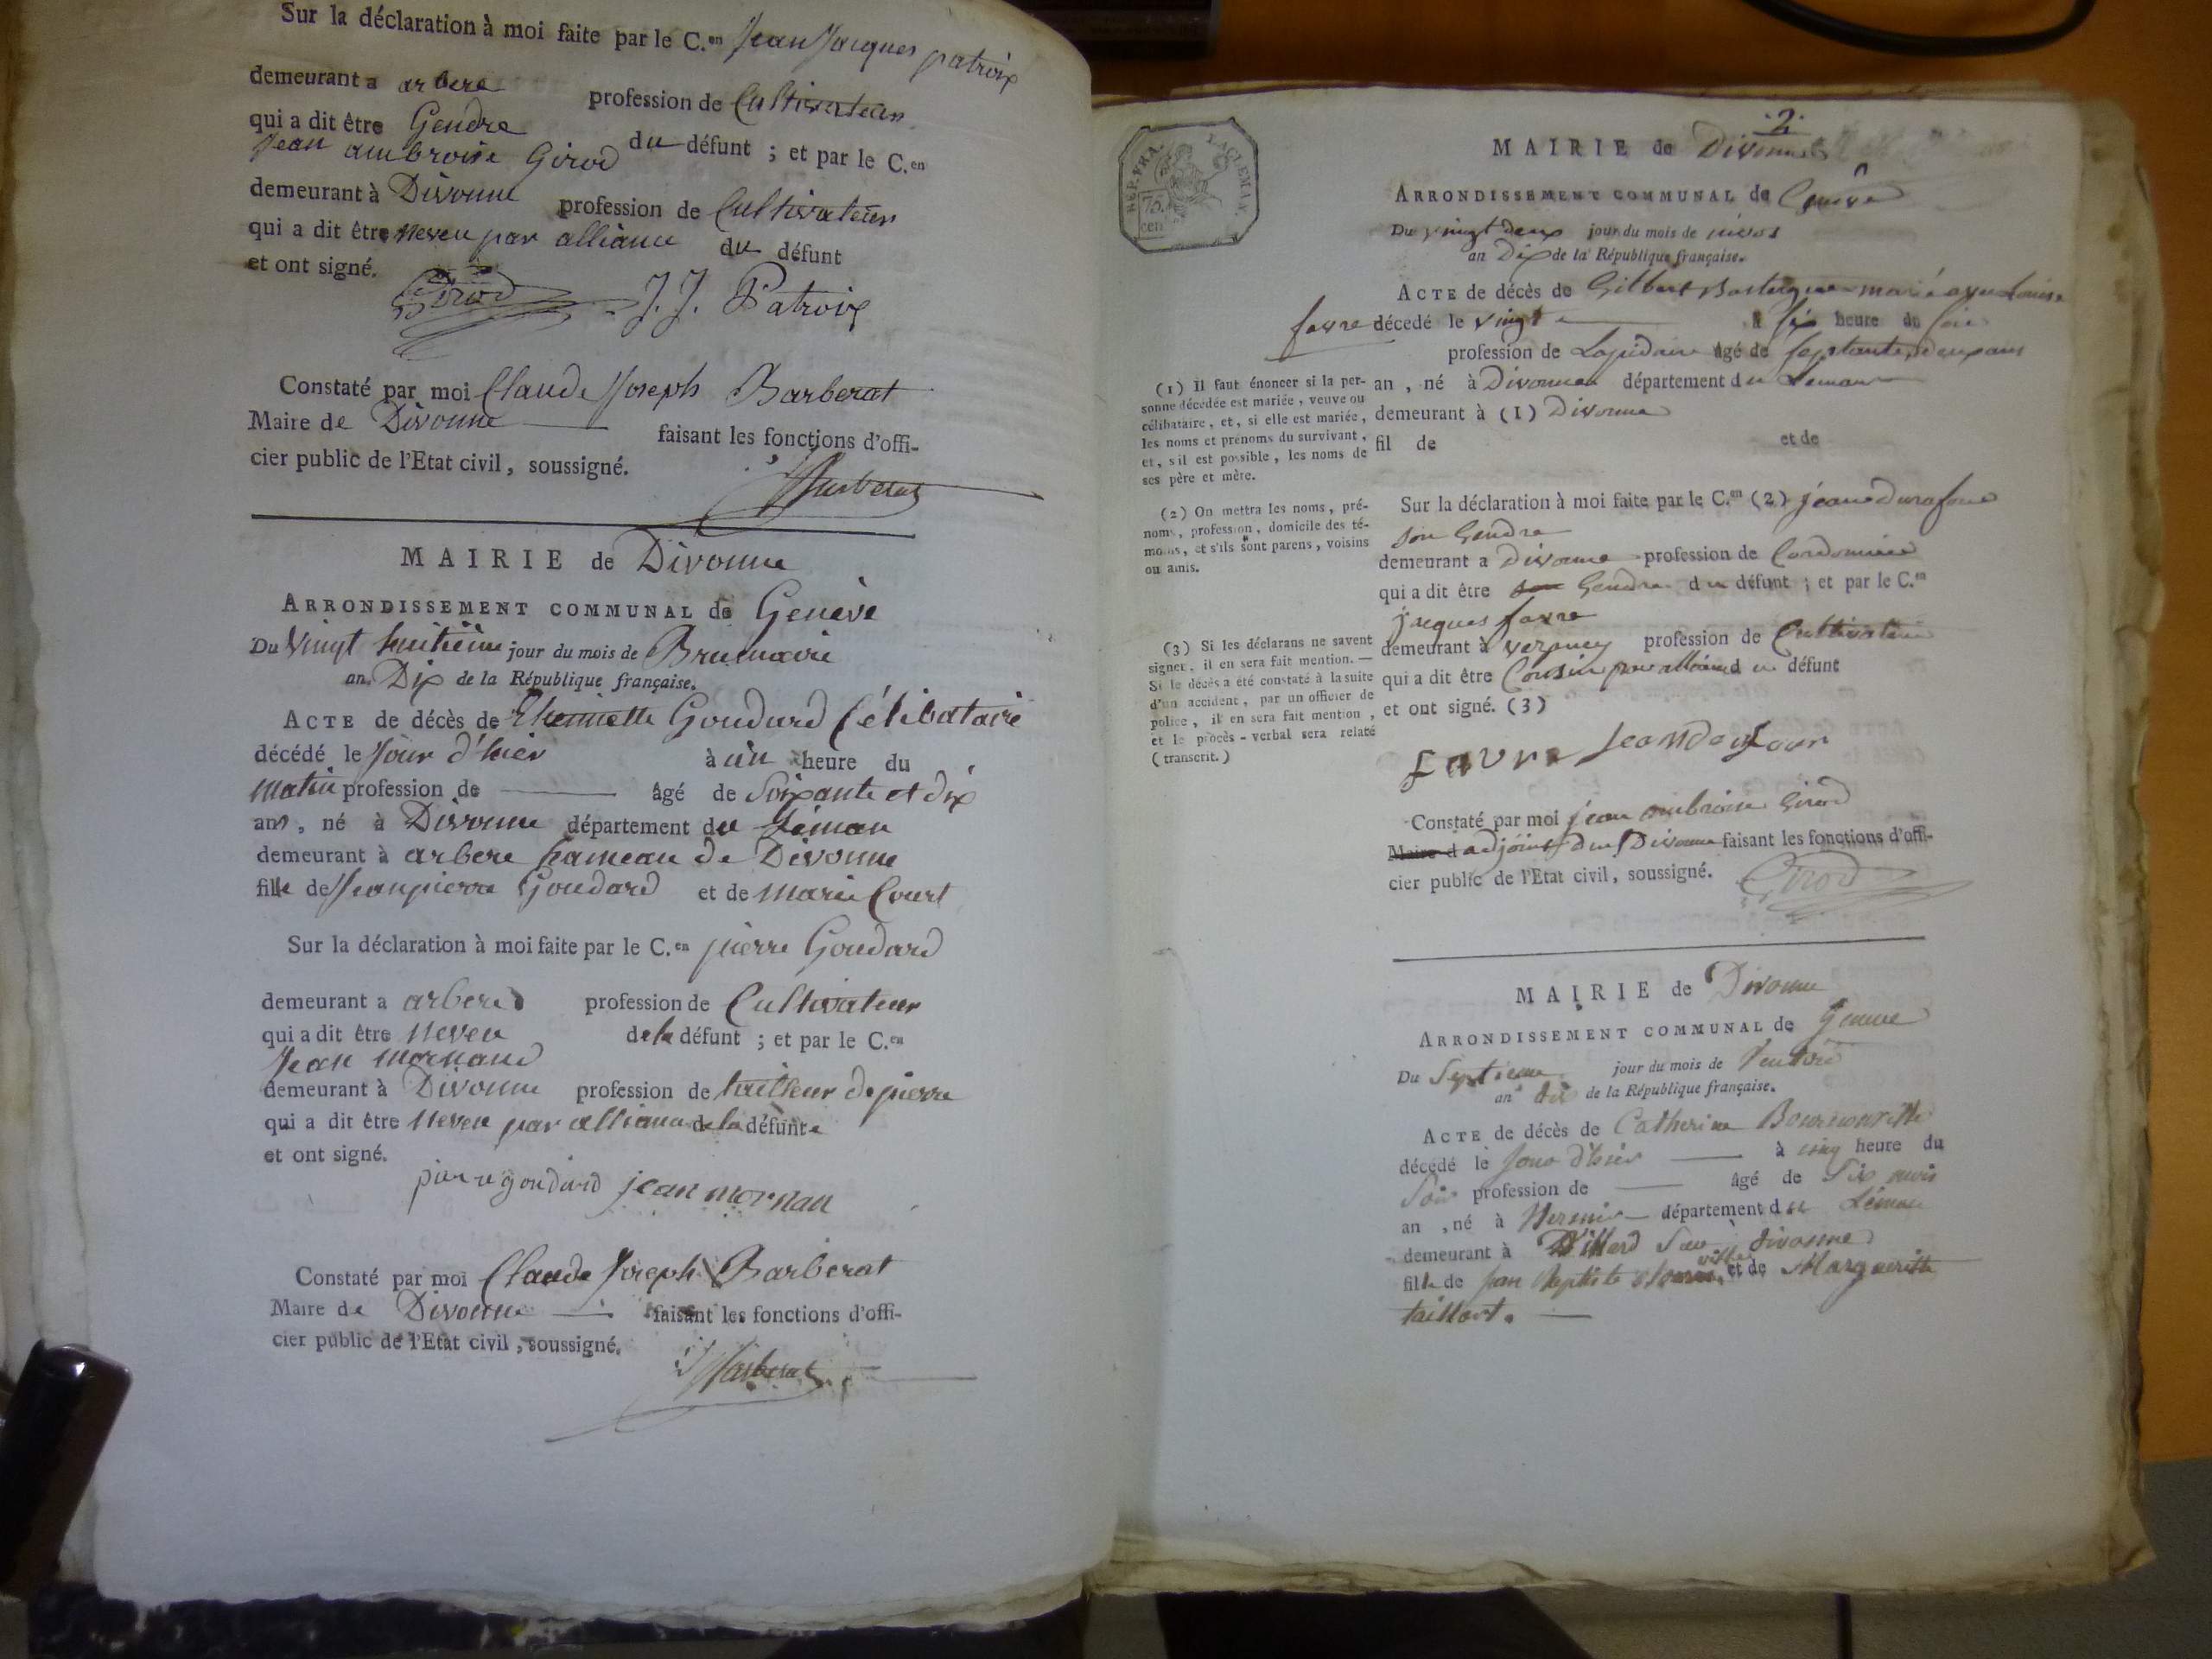 Sur la déclaration à moi faite par le C.en Jean Jacques patroix
demeurant a arbere profession de Cultivateur
qui a dit être Gendre du défunt ; et par le C.en
Jean ambroise Girod
demeurant à Divonne profession de Cultivateur
qui a dit être neveu par alliance du défunt
et ont signé.
Girod J. J. Patroix
Constaté par moi Claude Joseph Barberat
Maire de Divonne faisant les fonctions d'offi-
cier public de l'Etat civil, soussigné.
Barberat
MAIRIE de Divonne
ARRONDISSEMENT COMMUNAL de Genève
Du Vingt huitième jour du mois de Brumaire
an Dix de la République française.
ACTE de décès de Goudard Célibataire
décédé le Jour d'hier à un heure du
matin profession de âgé de Soixante et dix
ans, né à Divonne département du Léman
demeurant à arbere hameau de Divonne
fille de Jeanpierre Goudard et de marie Court
Sur la déclaration à moi faite par le C.en pierre Goudard
demeurant a arbere profession de Cultivateur
qui a dit être neveu de la défunt ; et par le C.en
Jean mornand
demeurant à Divonne profession de tailleur de pierre
qui a dit être neveu par alliance de la défunte
et ont signé.
pierre goudard jean mornan
Constaté par moi Claude Joseph Barberat
Maire de Divonne faisant les fonctions d'offi-
cier public de l'Etat civil, soussigné.
Barberat
2
REP. FRA.
75.
cen
MAIRIE de Divonne
ARRONDISSEMENT COMMUNAL de
Du vingt deux jour du mois de nivos
an Dix de la République française.
ACTE de décès de Gilbert marié avec Louise
favre décedé le vingt à six heure du soir
profession de Lapidaire âgé de septante deux ans
an, né à Divonne département du Leman
demeurant à (1) Divonne
fil de et de
(1) Il faut énoncer si la per-
sonne décédée est mariée, veuve ou
célibataire, et, si elle est mariée,
les noms et prénoms du survivant,
et, s'il est possible, les noms de
ses père et mère.
Sur la déclaration à moi faite par le C.en (2)
son Gendre
demeurant a Divonne profession de Cordonnier
qui a dit être son Gendre du défunt ; et par le C.en
jacques favre
demeurant à profession de Cultivateur
qui a dit être Cousin par alliance du défunt
et ont signé. (3)
(2) On mettra les noms, pré-
noms, profession, domicile des té-
moins, et s'ils sont parens, voisins
ou amis.
(3) Si les déclarans ne savent
signer, il en sera fait mention. —
Si le decès a été constaté à la suite
d'un accident, par un officier de
police, il en sera fait mention,
et le procès-verbal sera relaté
(transcrit.)
favre
Constaté par moi jean ambroise Girod
Maire d adjoint du Divonne faisant les fonctions d'offi-
cier public de l'Etat civil, soussigné.
Girod
MAIRIE de Divonne
ARRONDISSEMENT COMMUNAL de
Du Septieme jour du mois de
an dix de la République française.
ACTE de décès de Catherine
décédé le jour d'hier à cinq heure du
Soir profession de âgé de Six mois
an, né à département du Léman
demeurant à Villard divonne
fille de Jean Baptiste et de Marguerite
taillart.